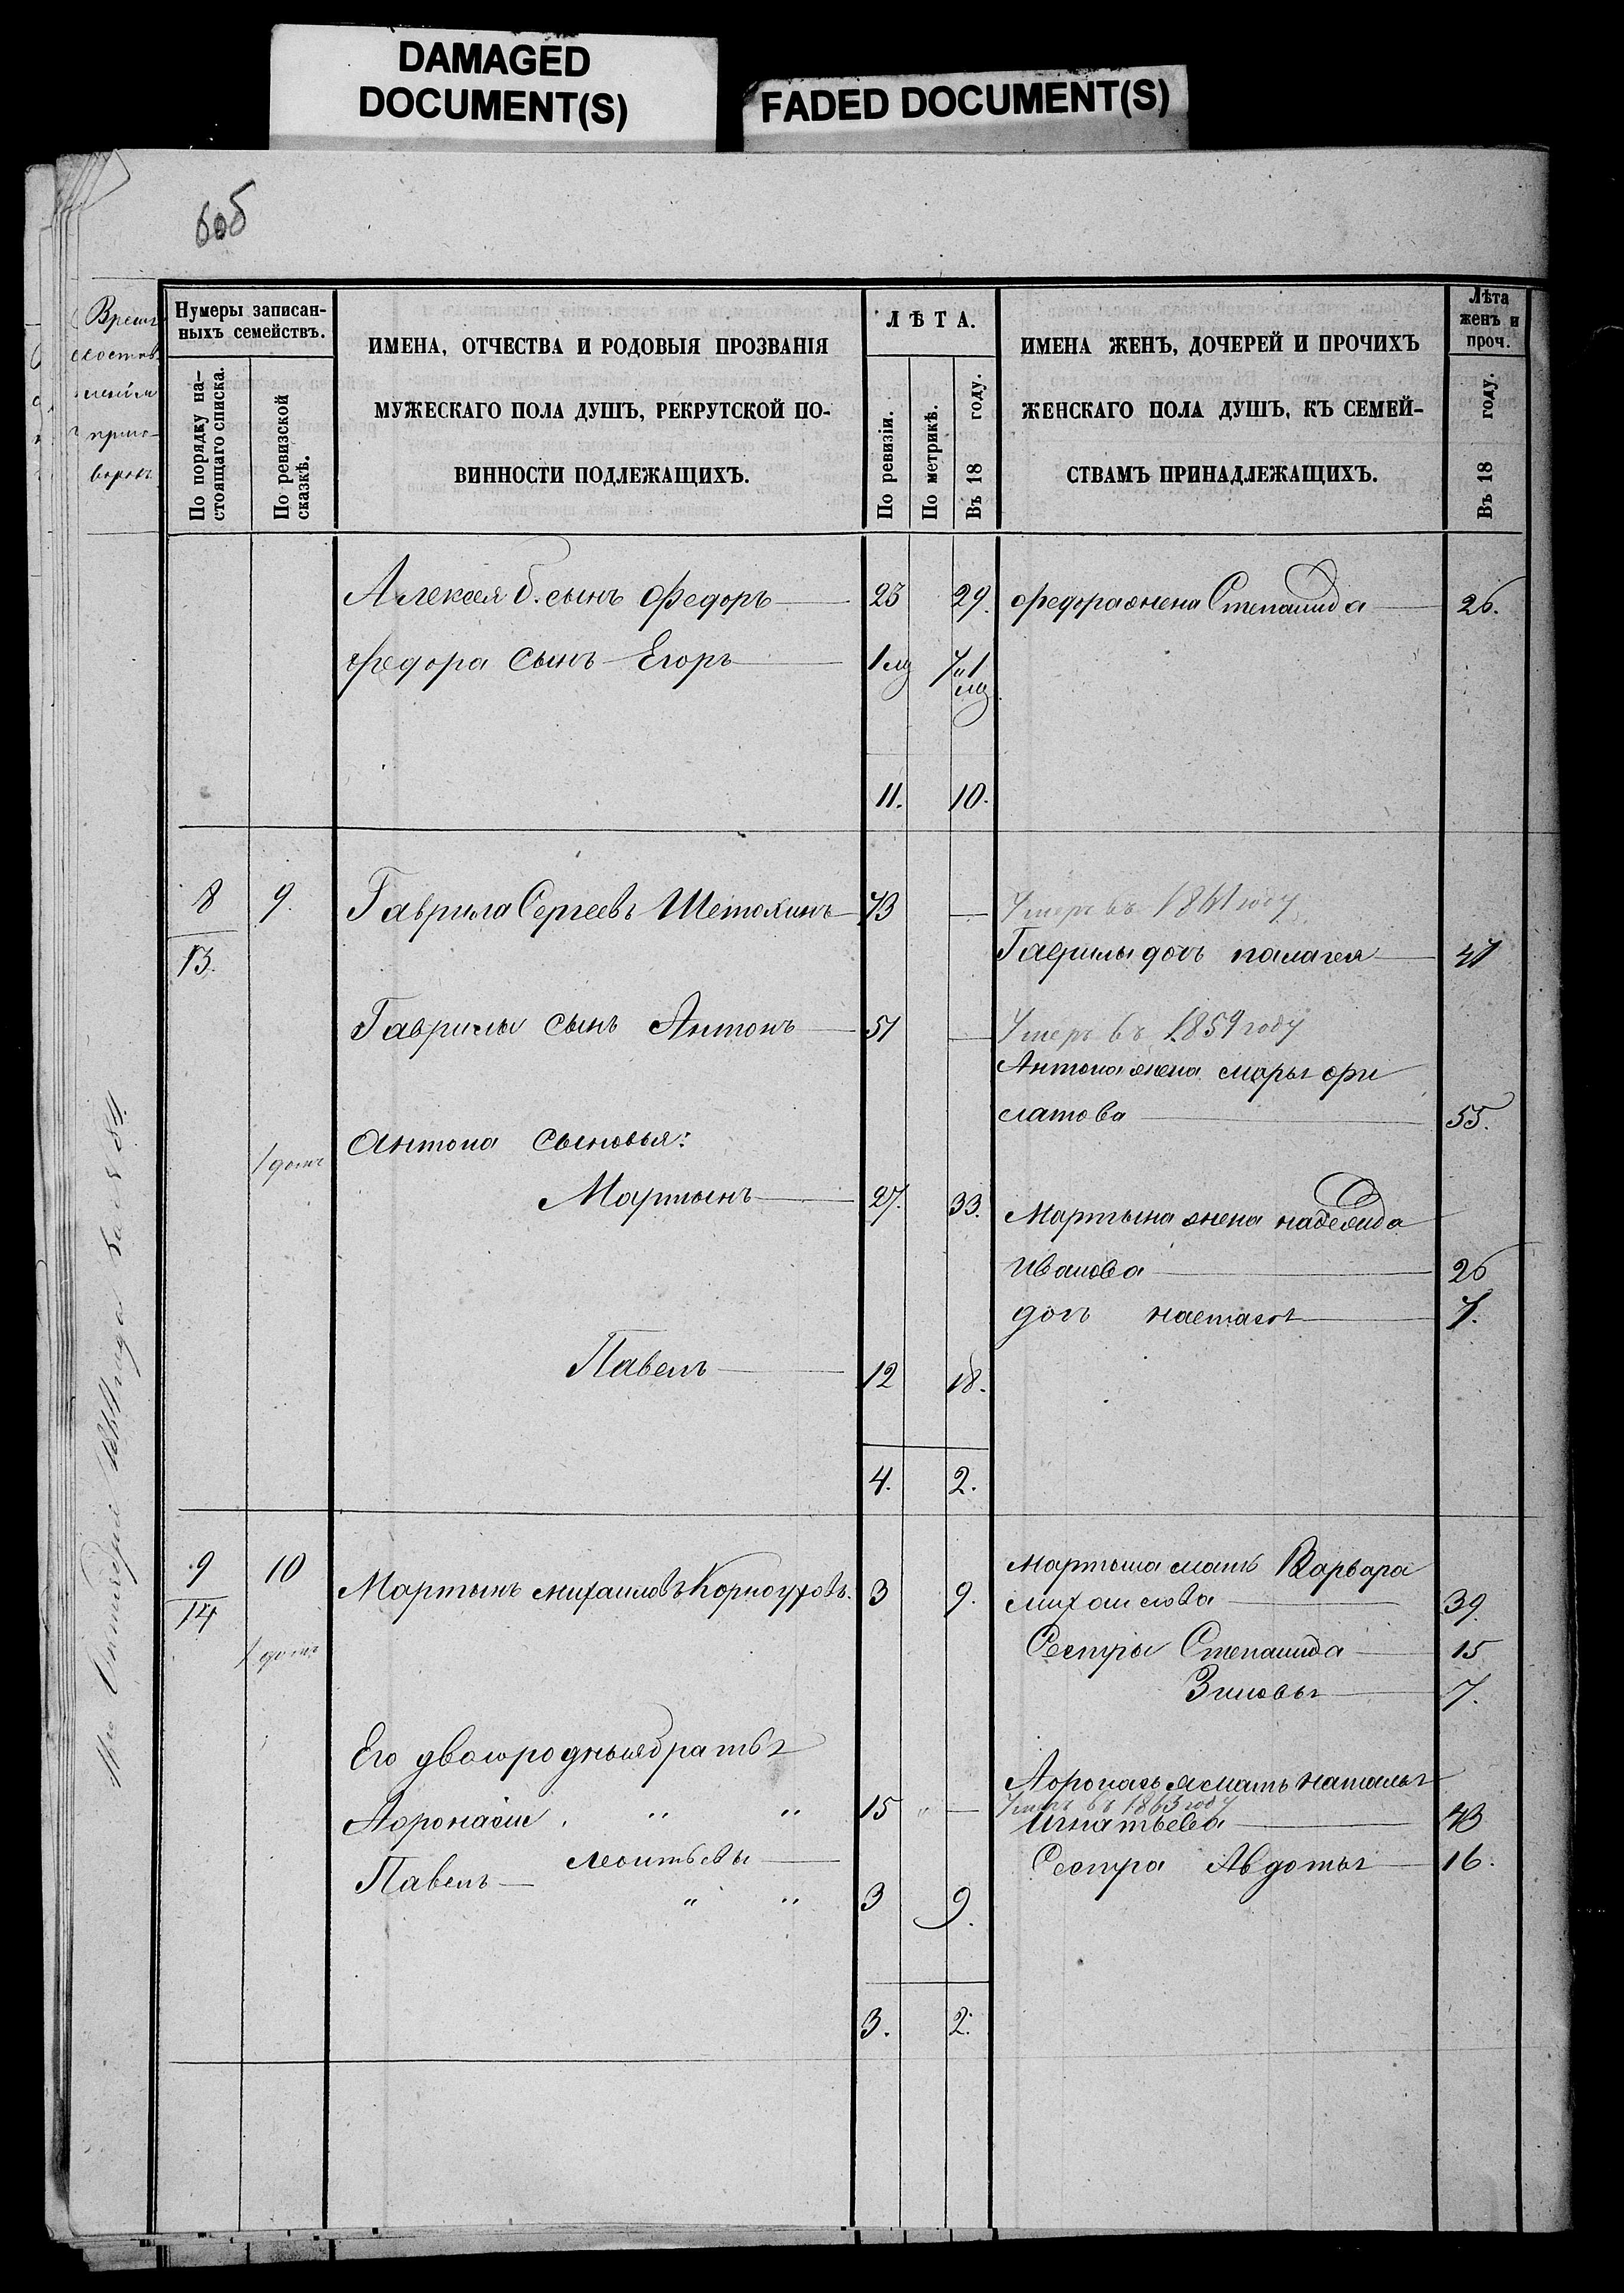 DAMAGED
DOCUMENT(S)
FADED DOCUMENT(S)
606
Нумеры записан-
ныхъ семействъ.
По порядку на-
стоящаго списка.
По ревизской
сказкѣ.
ИМЕНА, ОТЧЕСТВА И РОДОВЫЯ ПРОЗВАНІЯ
МУЖЕСКАГО ПОЛА ДУШЪ, РЕКРУТСКОЙ ПО-
ВИННОСТИ ПОДЛЕЖАЩИХЪ.
ЛѢТА.
По ревизіи.
По метрикѣ.
Въ 18 году.
ИМЕНА ЖЕНЪ, ДОЧЕРЕЙ И ПРОЧИХЪ
ЖЕНСКАГО ПОЛА ДУШЪ, КЪ СЕМЕЙ-
СТВАМЪ ПРИНАДЛЕЖАЩИХЪ.
Лѣта
женъ и
проч.
Въ 18 году.
Алексея б. сынъ Федоръ 23 29. Федора жена Степанида 26.
Федора сынъ Егоръ 1 мц
11. 10.
8 9. Гаврила Сергеевъ 73 — Умеръ въ 1861 году
13. Гаврилы дочь палагея 41
Гаврилы сынъ Антонъ 51 — Умеръ въ 1859 году
Антона жена марья фи
латова 55.
Антона сыновья:
Мартынъ 27. 33. Мартына жена надежда
Иванова 26
дочь настасья 7.
Павелъ 12 18.
4. 2.
9 10 Мартынъ михаиловъ Корноуховъ. 3 9. Мартына мать Варвара
14 михаилова 39.
Сестры Степанида 15
Зиновья 7.
Его двоюродные братья
Афонасья мать наталья
Афонасіи " " 15 " — Умеръ въ 1863 году
Игнатьева 43
Леонтьевы Сестра Авдотья 16.
Павелъ " " 3 9.
3. 2.